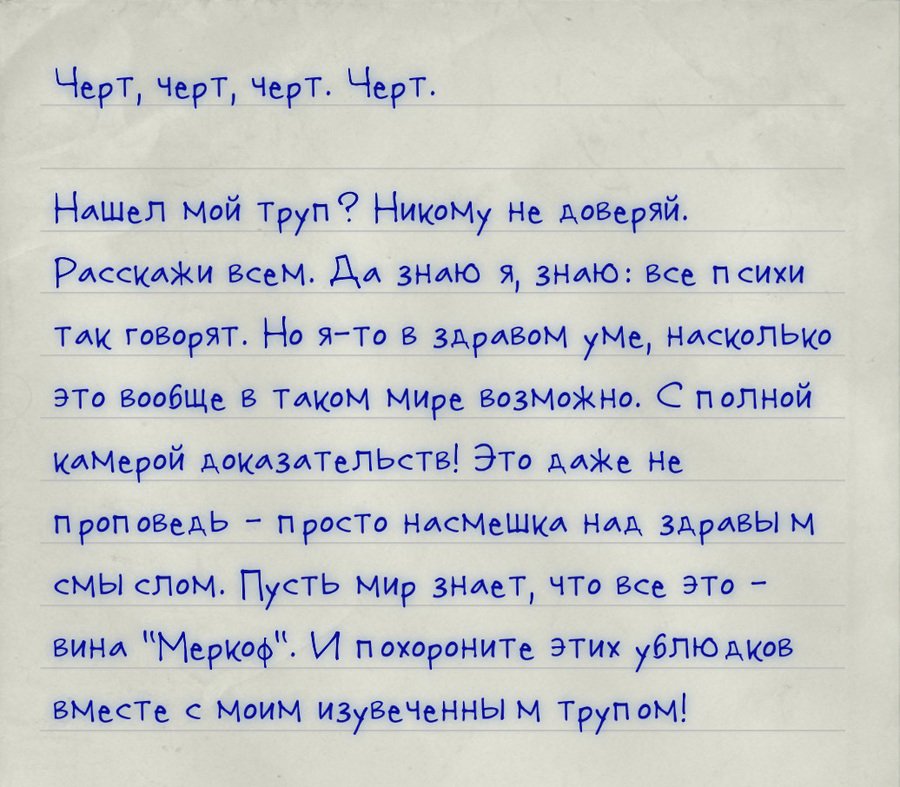 Черт, черт, черт. Черт.
Нашел мой труп? Никому не доверяй.
Расскажи всем. Да знаю я, знаю: все психи
так говорят. Но я-то в здравом уме, насколько
это вообще в таком мире возможно. С полной
камерой доказательств! Это даже не
проповедь - просто насмешка над здравым
смыслом. Пусть мир знает, что все это -
вина "Меркоф". И похороните этих ублюдков
вместе с моим изувеченным трупом!